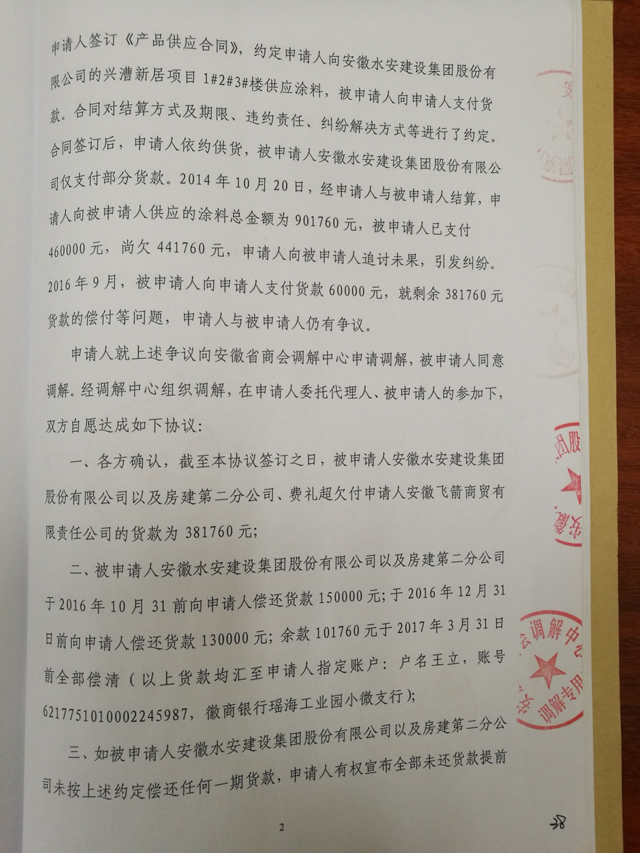 申请人签订《产品供应合同》，约定申请人向安徽水安建设集团股份有
限公司的兴漕新居项目 1#2#3#楼供应涂料，被申请人向申请人支付货
款。合同对结算方式及期限、违约责任、纠纷解决方式等进行了约定。
合同签订后，申请人依约供货，被申请人安徽水安建设集团股份有限公
司仅支付部分货款。2014 年 10 月 20 日，经申请人与被申请人结算，申
请人向被申请人供应的涂料总金额为 901760 元，被申请人已支付
460000 元，尚欠 441760 元，申请人向被申请人追讨未果，引发纠纷。
2016 年 9 月，被申请人向申请人支付货款 60000 元，就剩余 381760 元
货款的偿付等问题，申请人与被申请人仍有争议。
申请人就上述争议向安徽省商会调解中心申请调解，被申请人同意
调解。经调解中心组织调解，在申请人委托代理人、被申请人的参加下，
双方自愿达成如下协议：
一、各方确认，截至本协议签订之日，被申请人安徽水安建设集团
股份有限公司以及房建第二分公司、费礼超欠付申请人安徽飞箭商贸有
限责任公司的货款为 381760 元；
二、被申请人安徽水安建设集团股份有限公司以及房建第二分公司
于 2016 年 10 月 31 前向申请人偿还货款 150000 元；于 2016 年 12 月 31
日前向申请人偿还货款 130000 元；余款 101760 元于 2017 年 3 月 31 日
前全部偿清（以上货款均汇至申请人指定账户：户名王立，账号
6217751010002245987，徽商银行瑶海工业园小微支行）；
三、如被申请人安徽水安建设集团股份有限公司以及房建第二分公
司未按上述约定偿还任何一期货款，申请人有权宣布全部未还货款提前
2
38
安徽
股
会调解中
安
调解专用